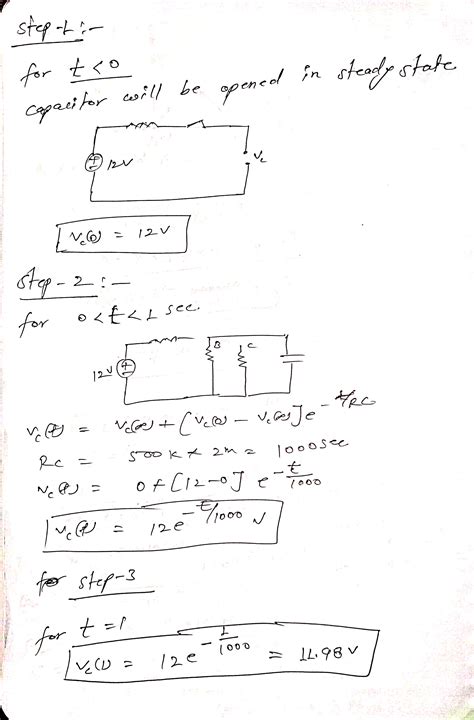 step-1:-
for t<0
capacitor will be opened in steady state
12V
Vc
Vc(0) = 12V
step-2:-
for 0<t<1 sec.
12V
B
C
Vc(t) = Vc(∞) + [Vc(0) - Vc(∞)] e^-t/RC
RC = 500k × 2m = 1000sec
Vc(t) = 0 + [12-0] e^-t/1000
Vc(t) = 12e^-t/1000 V
step-3
for t=1
Vc(1) = 12e^-1/1000 = 11.98V